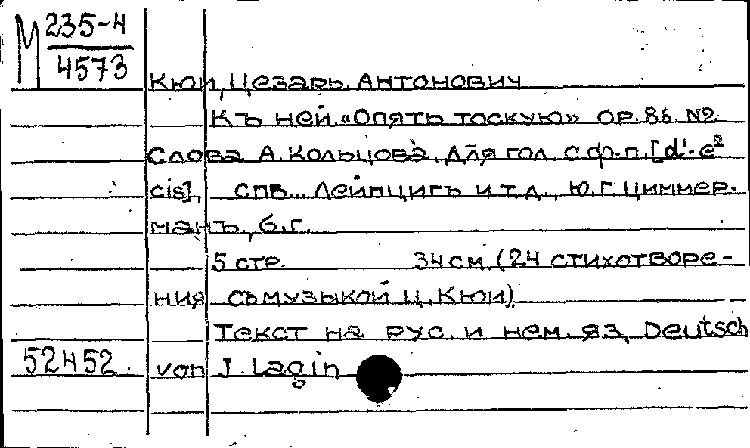 М 235-4
4573
Кюи, Цезарь Антонович
Къ ней «Опять тоскую» ор. 86 №2.
Слова А. Кольцова, для гол. с ф-п. [d'-e²
cis], СПБ... Лейпцигъ и т.д., Ю.Г. Циммер-
манъ, б.г.
5 стр. 34 см. (24 стихотворе-
ния съ музыкой Ц. Кюи)
Текст на рус. и нем. яз, Deutsch
52452. von J. Lagin